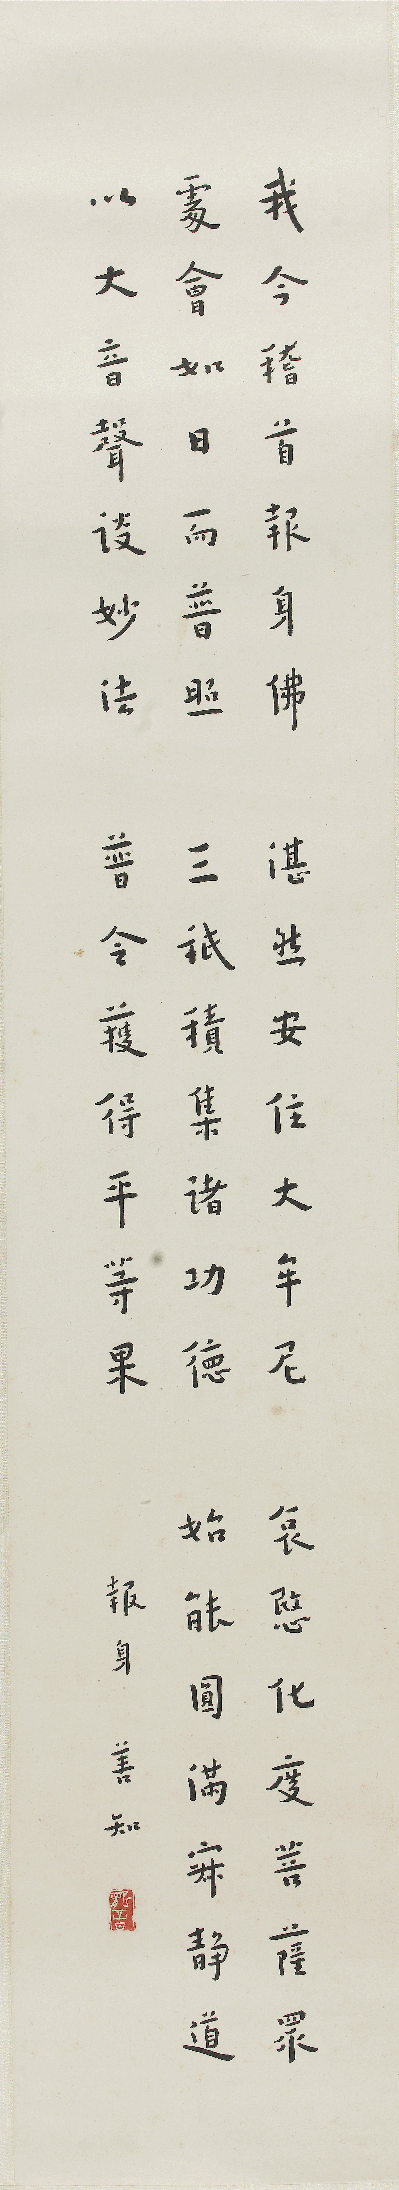 我今稽首報身佛　湛然安住大牟尼　哀愍化度菩薩眾
處會如日而普照　三祇積集諸功德　始能圓滿寂靜道
以大音聲談妙法　普令獲得平等果　報身　善知